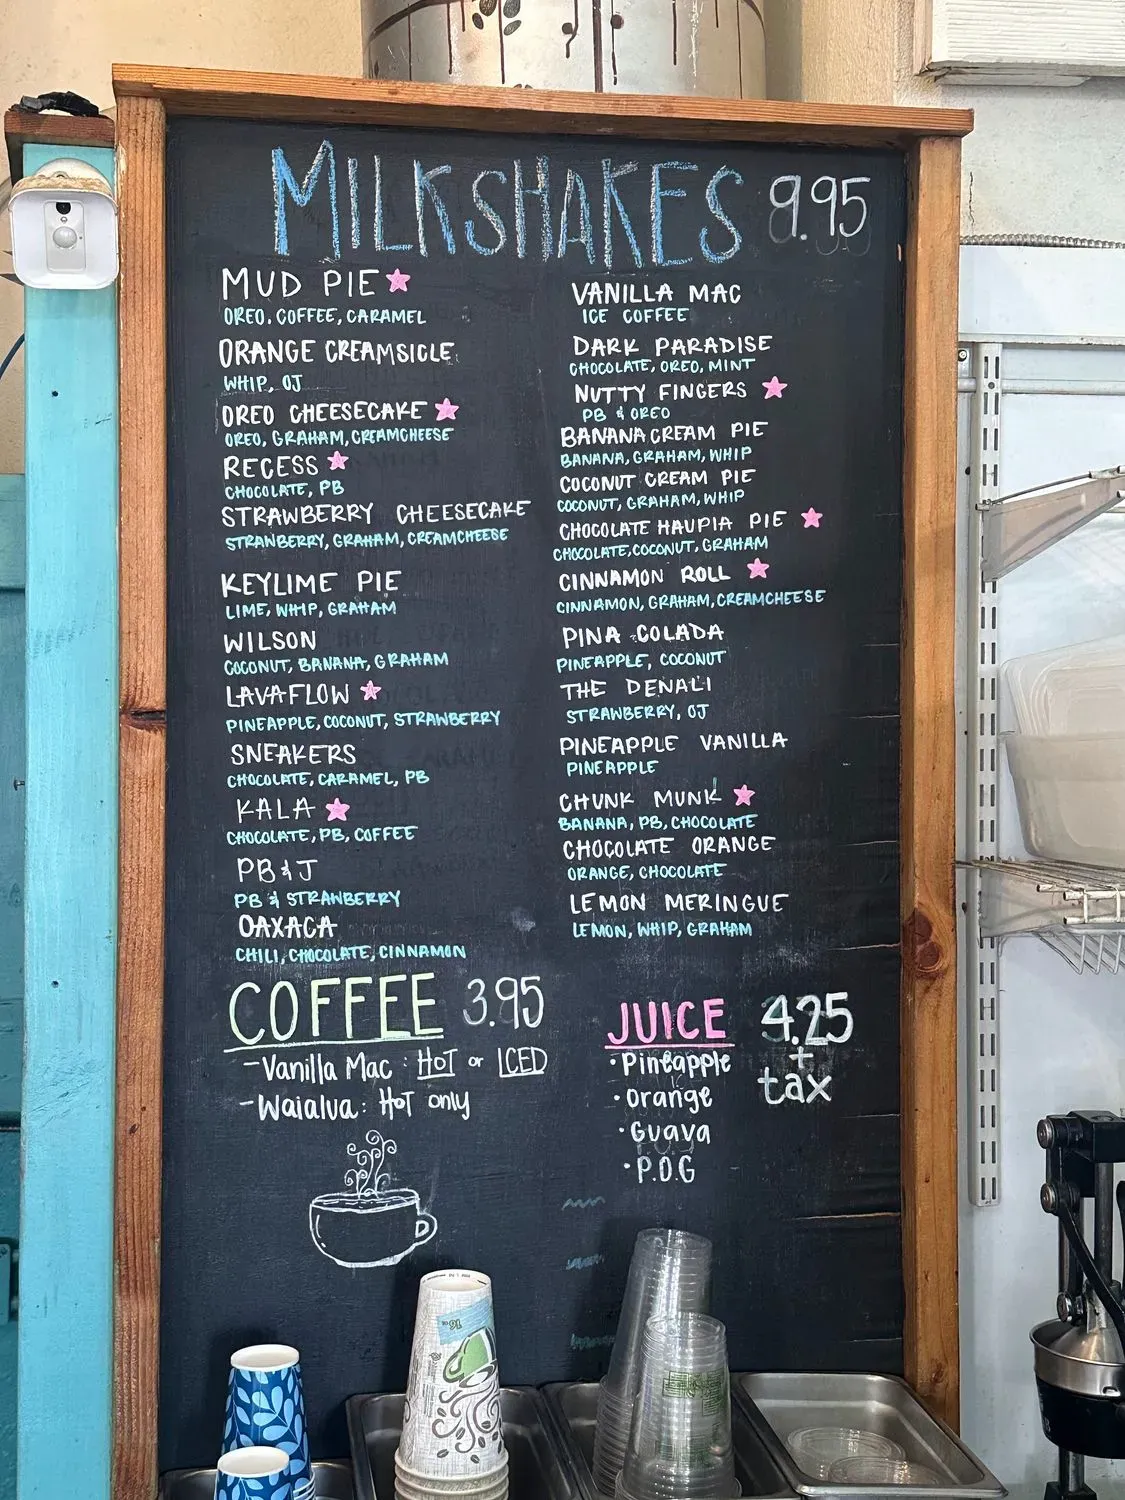 MILKSHAKES 9.95
MUD PIE
OREO, COFFEE, CARAMEL
ORANGE CREAMSICLE
WHIP, OJ
OREO CHEESECAKE
OREO, GRAHAM, CREAMCHEESE
RECESS
CHOCOLATE, PB
STRAWBERRY CHEESECAKE
STRAWBERRY, GRAHAM, CREAMCHEESE
KEYLIME PIE
LIME, WHIP, GRAHAM
WILSON
COCONUT, BANANA, GRAHAM
LAVAFLOW
PINEAPPLE, COCONUT, STRAWBERRY
SNEAKERS
CHOCOLATE, CARAMEL, PB
KALA
CHOCOLATE, PB, COFFEE
PB & J
PB & STRAWBERRY
OAXACA
CHILI, CHOCOLATE, CINNAMON
VANILLA MAC
ICE COFFEE
DARK PARADISE
CHOCOLATE, OREO, MINT
NUTTY FINGERS
PB & OREO
BANANA CREAM PIE
BANANA, GRAHAM, WHIP
COCONUT CREAM PIE
COCONUT, GRAHAM, WHIP
CHOCOLATE HAUPIA PIE
CHOCOLATE, COCONUT, GRAHAM
CINNAMON ROLL
CINNAMON, GRAHAM, CREAMCHEESE
PINA COLADA
PINEAPPLE, COCONUT
THE DENALI
STRAWBERRY, OJ
PINEAPPLE VANILLA
PINEAPPLE
CHUNK MUNK
BANANA, PB, CHOCOLATE
CHOCOLATE ORANGE
ORANGE, CHOCOLATE
LEMON MERINGUE
LEMON, WHIP, GRAHAM
COFFEE 3.95
- Vanilla Mac : HOT or ICED
- Waialua : HOT only
JUICE 4.25
+
tax
• Pineapple
• Orange
• Guava
• P.O.G
16 oz